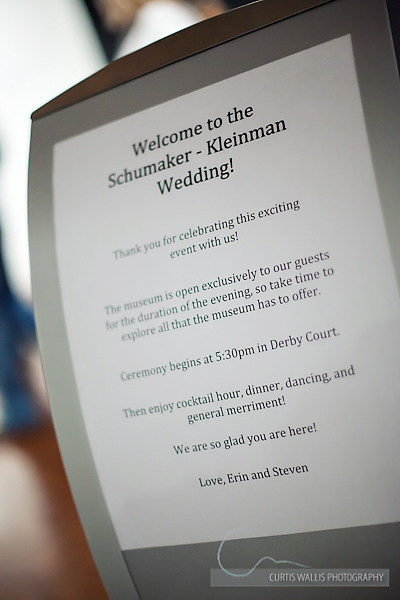 Welcome to the
Schumaker - Kleinman
Wedding!
Thank you for celebrating this exciting
event with us!
The museum is open exclusively to our guests
for the duration of the evening, so take time to
explore all that the museum has to offer.
Ceremony begins at 5:30pm in Derby Court.
Then enjoy cocktail hour, dinner, dancing, and
general merriment!
We are so glad you are here!
Love, Erin and Steven
CURTIS WALLIS PHOTOGRAPHY